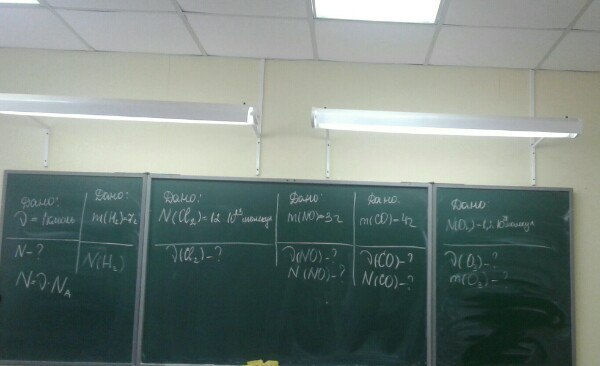 Дано:
ν = 1 кмоль
N-?
N=ν·Nₐ
Дано:
m(H₂)=
N(H₂)
Дано:
N(Cl₂)=1,2·10²³ молекул
ν(Cl₂)-?
Дано:
m(NO)=3г
ν(NO)-?
N(NO)-?
Дано:
m(CO)=4г
ν(CO)-?
N(CO)-?
Дано:
молекул
ν(O₃)-?
m(O₃)-?